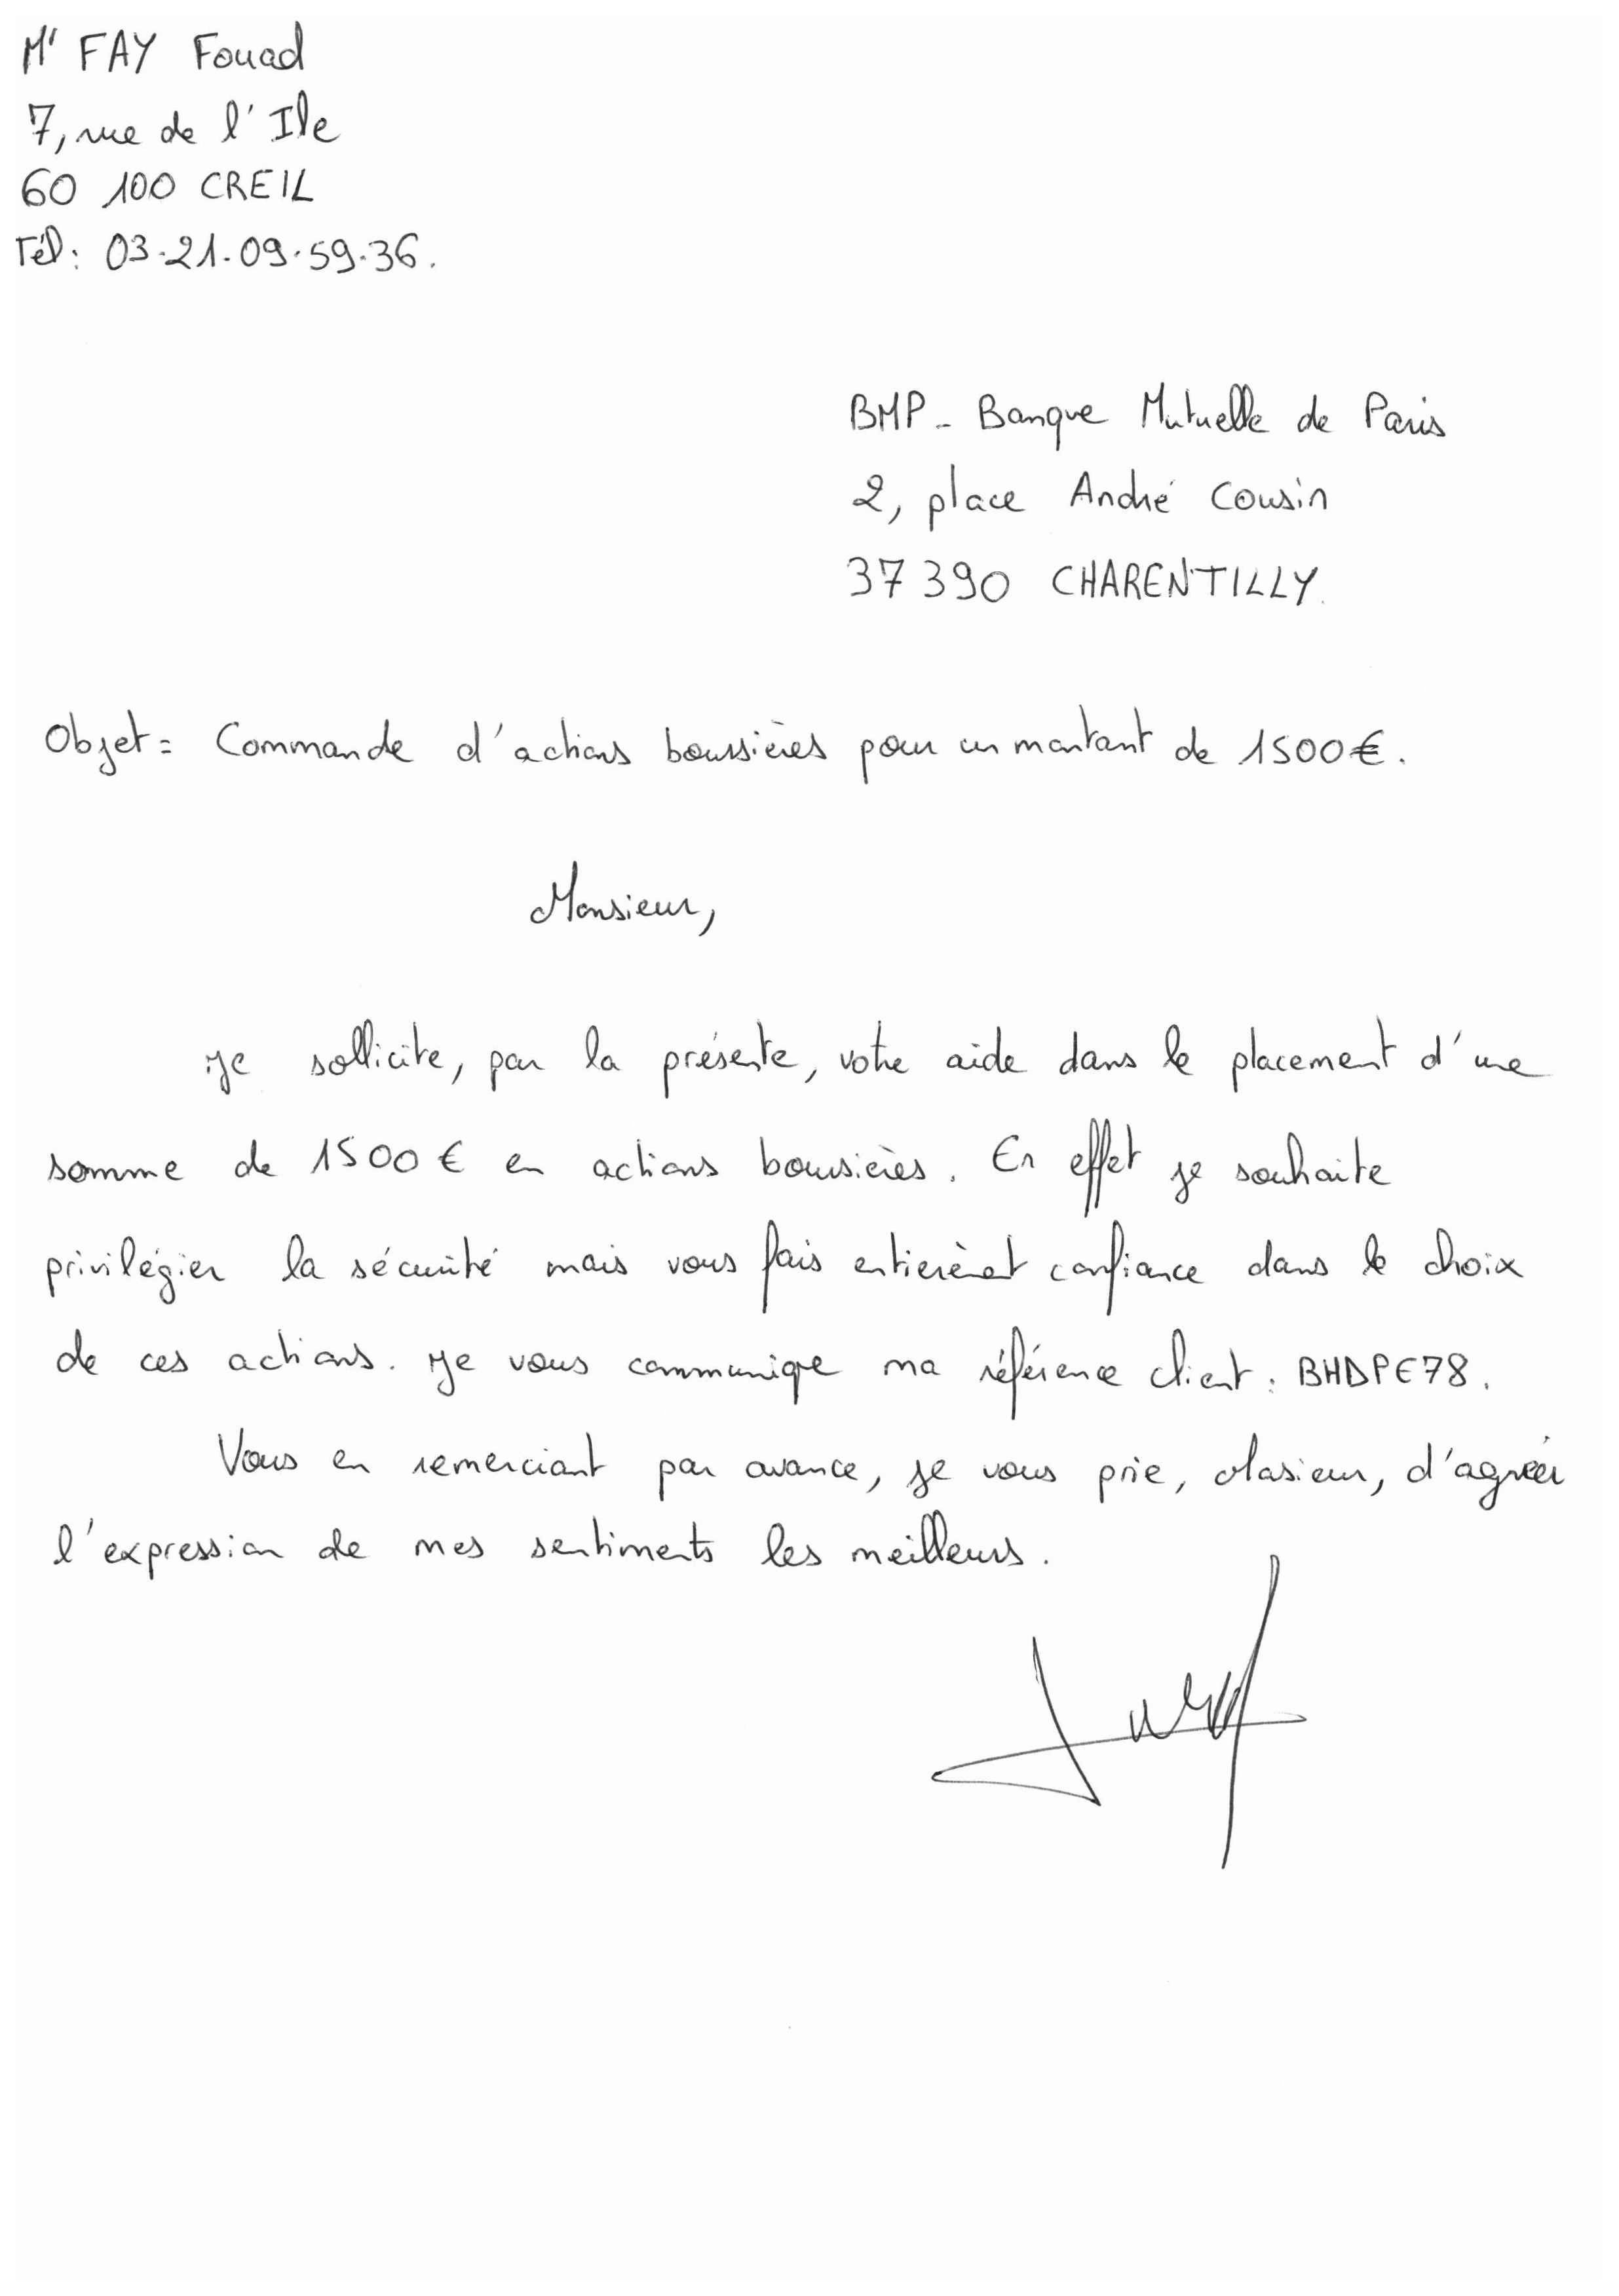 Mr FAY Fouad
7, rue de l'Ile
60 100 CREIL
Tél: 03.21.09.59.36.
BMP - Banque Mutuelle de Paris
2, place André Cousin
37 390 CHARENTILLY.
Objet = Commande d'actions boussières pour un montant de 1500€.
Monsieur,
Je sollicite, par la présente, votre aide dans le placement d'une
somme de 1500 € en actions boursières. En effet je souhaite
privilégier la sécurité mais vous fais confiance dans le choix
de ces actions. Je vous communique ma référence client : BHDPE78.
Vous en remerciant par avance, je vous prie, Monsieur, d'agréer
l'expression de mes sentiments les meilleurs.